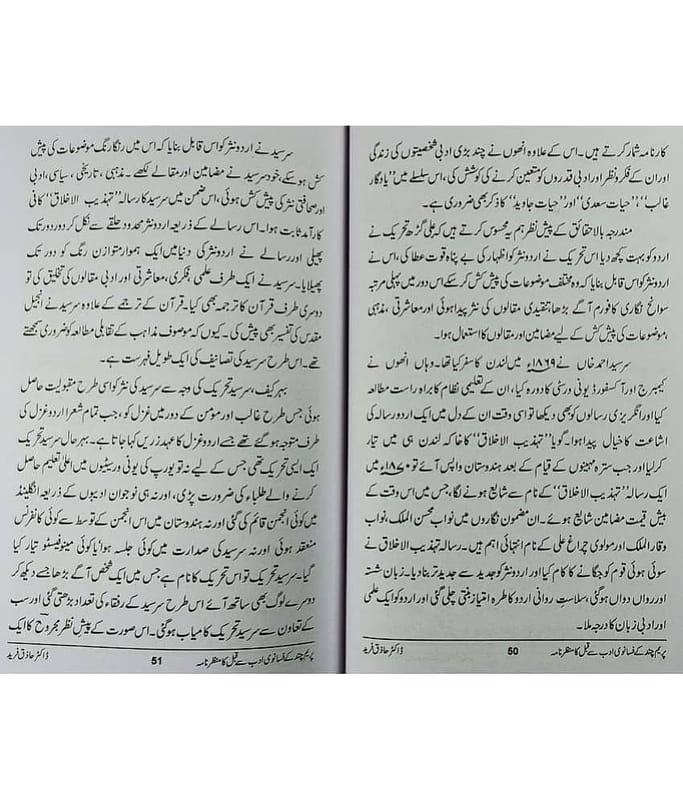 کارنامہ شمار کرتے ہیں۔ اس کے علاوہ انھوں نے چند بڑی ادبی شخصیتوں کی زندگی
اور ان کے فکر و نظر اور ادبی قدروں کو متعین کرنے کی کوشش کی، اس سلسلے میں ’’یادگار
غالب‘‘، ’’حیات سعدی‘‘ اور ’’حیات جاوید‘‘ کا ذکر بھی ضروری ہے۔
مندرجہ بالا حقائق کے پیش نظر ہم یہ محسوس کرتے ہیں کہ علی گڑھ تحریک نے
اردو کو بہت کچھ دیا اس تحریک نے اردو نثر کو اظہار کی بے پناہ قوت عطا کی، اس نے
اردو نثر کو اس قابل بنایا کہ وہ مختلف موضوعات کی پیش کش کر سکے اس دور میں پہلی مرتبہ
سوانح نگاری کا فورم آگے بڑھا، تنقیدی مقالوں کی نثر پیدا ہوئی اور معاشرتی، مذہبی
موضوعات کی پیش کش کے لیے مضامین اور مقالوں کا استعمال ہوا۔
سر سید احمد خاں نے ۱۸۶۹ء میں لندن کا سفر کیا تھا۔ وہاں انھوں نے
کیمبرج اور آکسفورڈ یونی ورسٹی کا دورہ کیا، ان کے تعلیمی نظام کا براہ راست مطالعہ
کیا اور انگریزی رسالوں کو بھی دیکھا تو اسی وقت ان کے دل میں ایک اردو رسالہ کی
اشاعت کا خیال پیدا ہوا۔ گویا ’’تہذیب الاخلاق‘‘ کا خاکہ لندن ہی میں تیار
کر لیا اور جب سترہ مہینوں کے قیام کے بعد ہندوستان واپس آئے تو ۱۸۷۰ء میں
ایک رسالہ ’’تہذیب الاخلاق‘‘ کے نام سے شایع ہونے لگا، جس میں اس وقت کے
بیش قیمت مضامین شایع ہوئے۔ ان مضمون نگاروں میں نواب محسن الملک، نواب
وقار الملک اور مولوی چراغ علی کے نام انتہائی اہم ہیں۔ رسالہ تہذیب الاخلاق نے
سوئی ہوئی قوم کو جگانے کا کام کیا اور اردو نثر کو جدید سے جدید تر بنا دیا۔ زبان شستہ
اور رواں دواں ہو گئی، سلاست روانی اردو کا طرہ امتیاز بنتی چلی گئی اور اردو کو ایک علمی
اور ادبی زبان کا درجہ ملا۔
پریم چند کے افسانوی ادب سے قبل کا منظر نامہ 50 ڈاکٹر حاذق فرید
سر سید نے اردو نثر کو اس قابل بنایا کہ اس میں رنگا رنگ موضوعات کی پیش
کش ہو سکے، خود سر سید نے مضامین اور مقالے لکھے۔ مذہبی، تاریخی، سیاسی، ادبی
اور صحافتی نثر کی پیش کش ہوئی، اس ضمن میں سر سید کا رسالہ ’’تہذیب الاخلاق‘‘ کافی
کارآمد ثابت ہوا۔ اس رسالے کے ذریعہ اردو نثر محدود حلقے سے نکل کر دور دور تک
پھیلی اور رسالے نے اردو نثر کی دنیا میں ایک ہموار متوازن رنگ کو دور تک
پھیلایا۔ سر سید نے ایک طرف علمی، فکری، معاشرتی اور ادبی مقالوں کی تخلیق کی تو
دوسری طرف قرآن کا ترجمہ بھی کیا۔ قرآن کے ترجمے کے علاوہ سر سید نے انجیل
مقدس کی تفسیر بھی پیش کی۔ کیوں کہ موصوف مذاہب کے تقابلی مطالعہ کو ضروری سمجھتے
تھے۔ اس طرح سر سید کی تصانیف کی ایک طویل فہرست ہے۔
بہر کیف، سر سید تحریک کی وجہ سے سر سید کی نثر کو اسی طرح مقبولیت حاصل
ہوئی جس طرح غالب اور مومن کے دور میں غزل کو، جب تمام شعرا اردو غزل کی
طرف متوجہ ہو گئے تھے جسے اردو غزل کا عہد زریں کہا جاتا ہے۔ بہر حال سر سید تحریک
ایک ایسی تحریک تھی جس کے لیے نہ تو یورپ کی یونی ورسیٹیوں میں اعلیٰ تعلیم حاصل
کرنے والے طلباء کی ضرورت پڑی، اور نہ ہی نوجوان ادیبوں کے ذریعہ انگلینڈ
میں کوئی انجمن قائم کی گئی اور نہ ہندوستان میں اس انجمن کے توسط سے کوئی کانفرنس
منعقد ہوئی اور نہ سر سید کی صدارت میں کوئی جلسہ ہوا یا کوئی مینوفیسٹو تیار کیا
گیا۔ سر سید تحریک تو اس تحریک کا نام ہے جس میں ایک شخص آگے بڑھا جسے دیکھ کر
دوسرے لوگ بھی ساتھ آئے اس طرح سر سید کے رفقاء کی تعداد بڑھتی گئی اور سب
کے تعاون سے سر سید تحریک کامیاب ہو گئی۔ اس صورت کے پیش نظر مجروح کا ایک
پریم چند کے افسانوی ادب سے قبل کا منظر نامہ 51 ڈاکٹر حاذق فرید